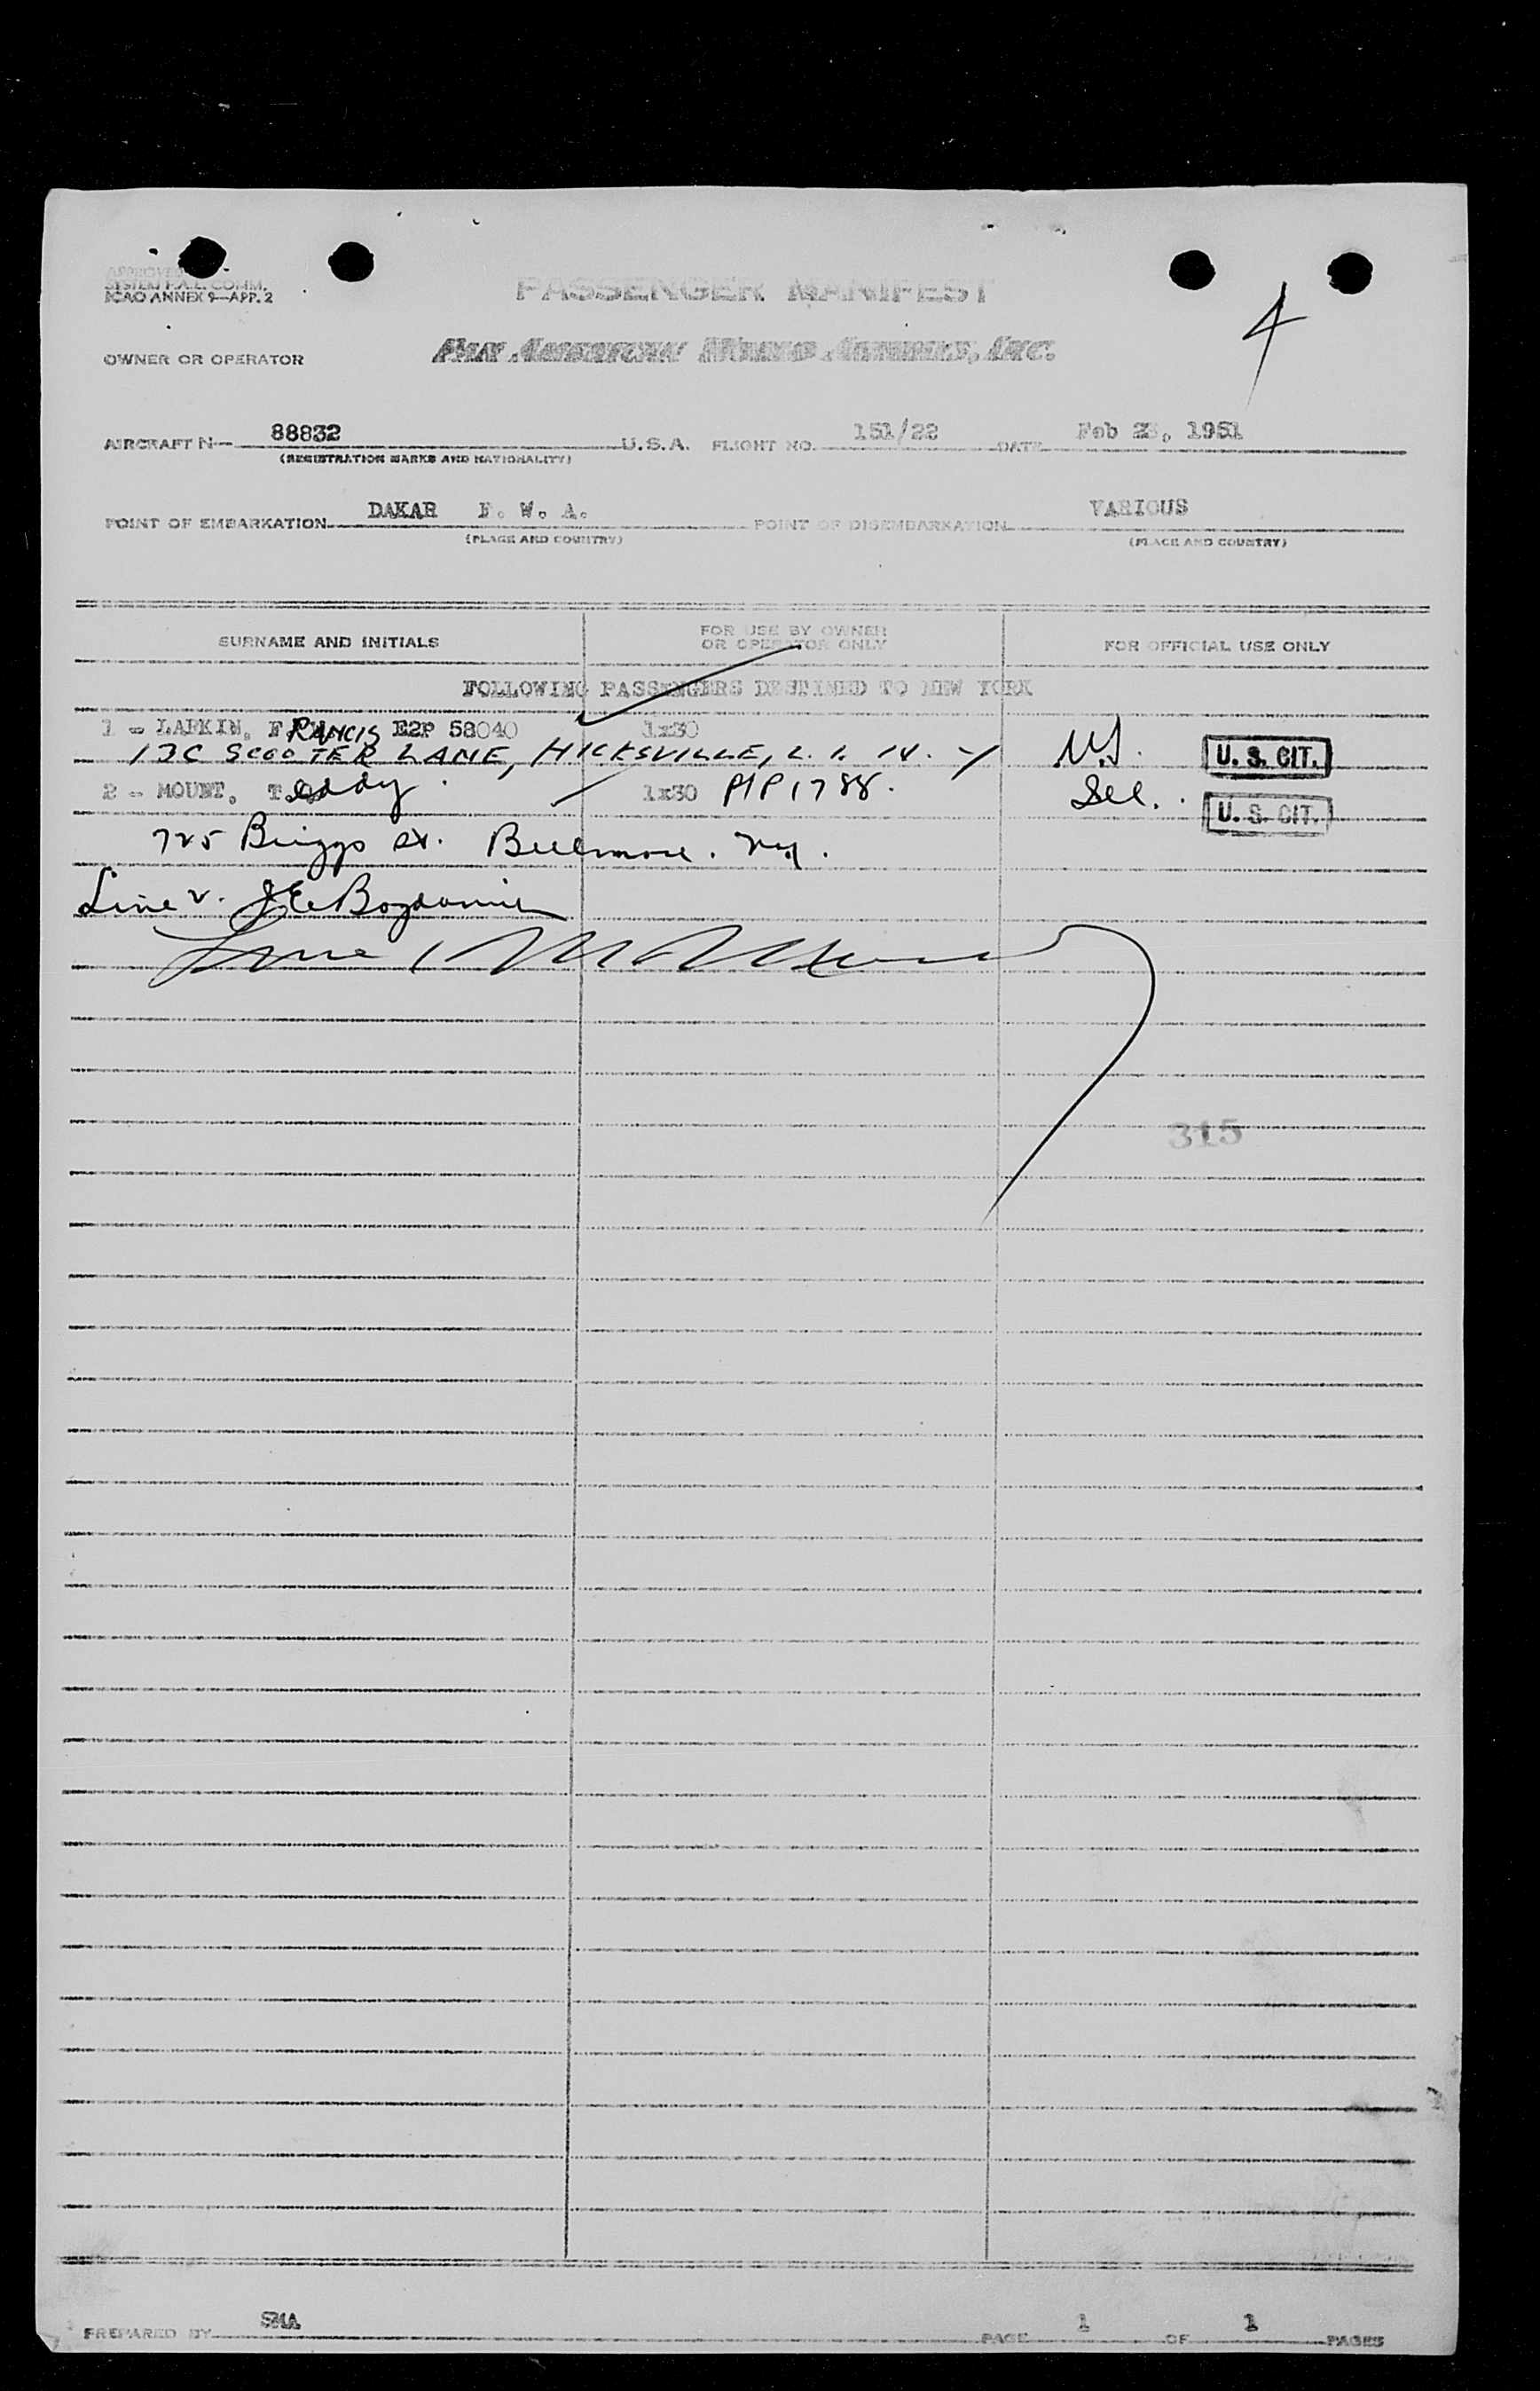 APPROVED
SYSTEM F.A.L. COMM.
ICAO ANNEX 9—APP. 2
PASSENGER MANIFEST
4
OWNER OR OPERATOR PAN AMERICAN WORLD AIRWAYS, INC.
AIRCRAFT N— 88832 U.S.A. FLIGHT NO. 151/22 DATE Feb 23, 1951
(REGISTRATION MARKS AND NATIONALITY)
POINT OF EMBARKATION DAKAR F. W. A. POINT OF DISEMBARKATION VARIOUS
(PLACE AND COUNTRY) (PLACE AND COUNTRY)
SURNAME AND INITIALS FOR USE BY OWNER OR OPERATOR ONLY FOR OFFICIAL USE ONLY
FOLLOWING PASSENGERS DESTINED TO NEW YORK
1 - LARKIN, FRANCIS E2P 58040 1x30
13C SCOOTER LANE, HICKSVILLE, L. I. N. Y U. S. CIT.
2 - MOUNT, Teddy 1x30 PIP 1788. U. S. CIT.
725 Briggs St. Bellmore. N.Y.
Line 2.
Line 1
315
PREPARED BY SMA PAGE 1 OF 1 PAGES